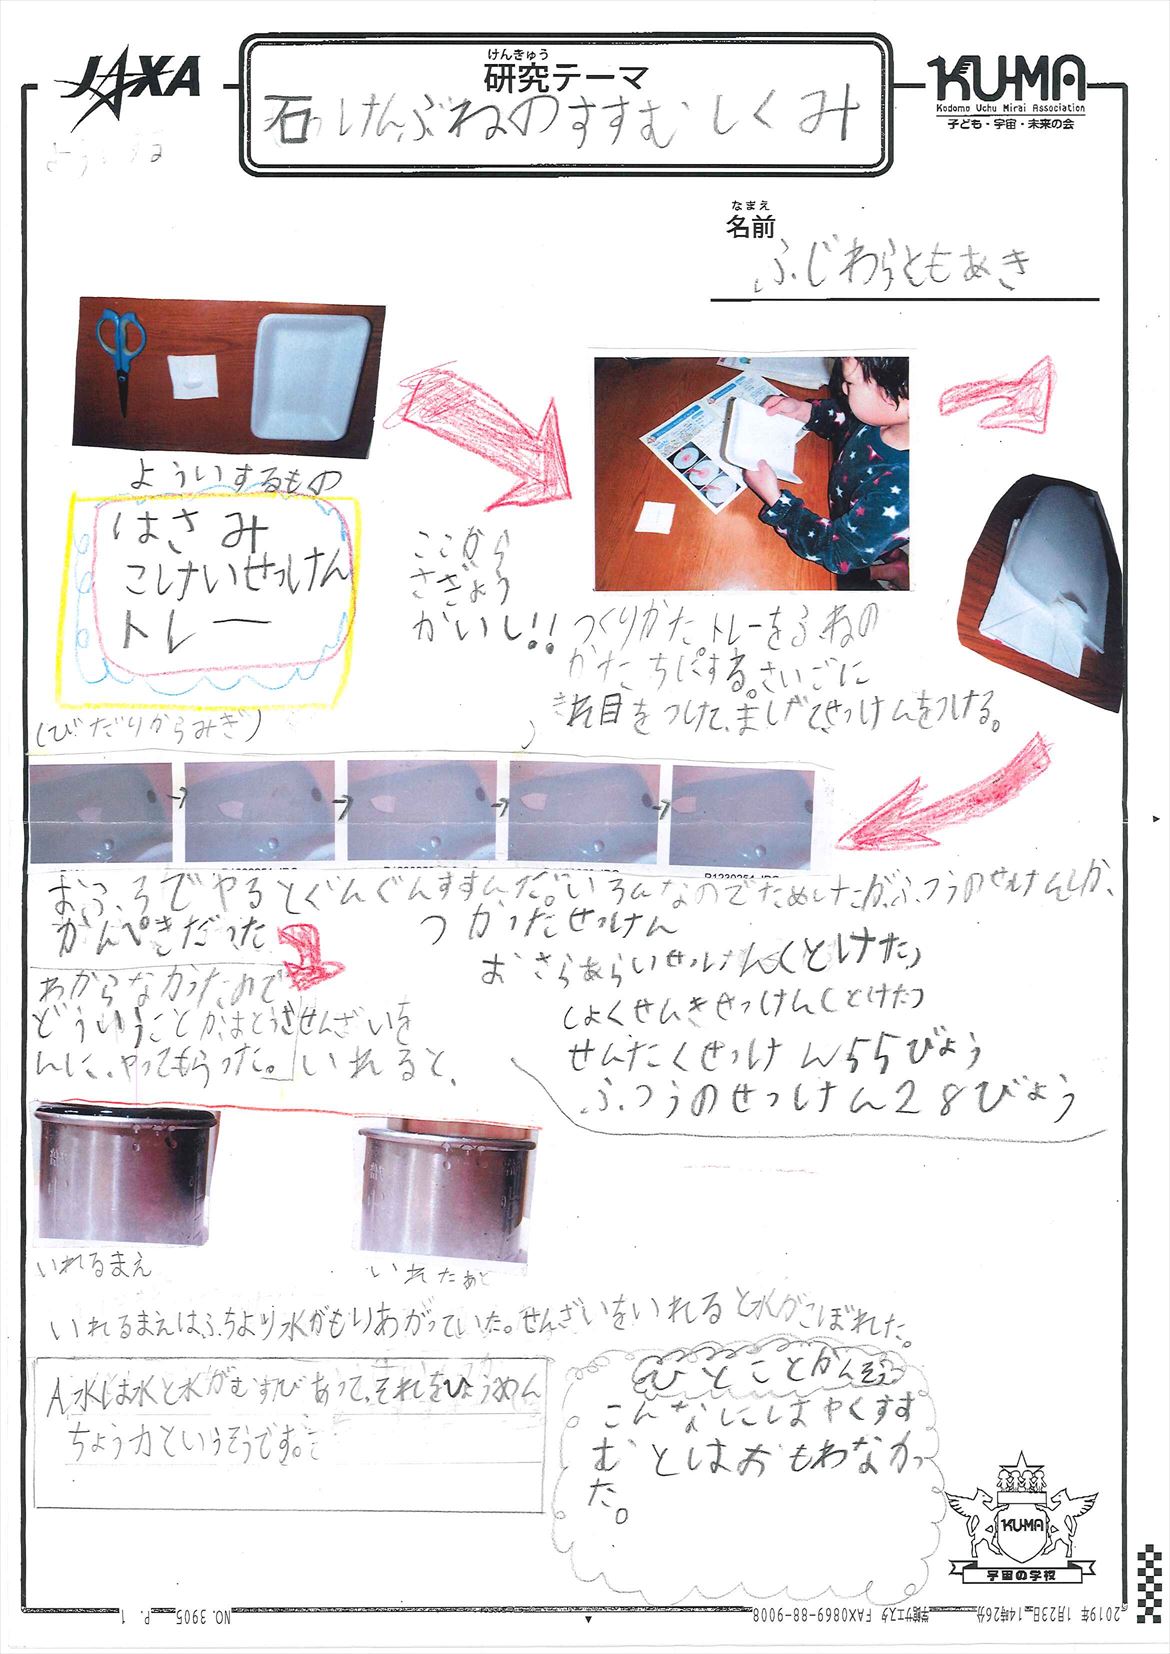 JAXA
けんきゅう
研究テーマ
石っけんぶねのすすむしくみ
KU-MA
Kodomo Uchu Mirai Association
子ども・宇宙・未来の会
なまえ
名前
ふじわらともあき
よういするもの
はさみ
こけいせっけん
トレー
ここから
さぎょう
かいし!!
つくりかた トレーをふねの
かたちにする。さいごに
きれ目をつけて、まげてせっけんをつける。
(ひだりからみぎ)
おふろでやるとぐんぐんすすんだ。いろんなのでためしたが、ふつうのせっけんしか、
かんぺきだった
つかったせっけん
おさらあらいせっけん(とけた)
しょくせんきせっけん(とけた)
せんたくせっけん55びょう
ふつうのせっけん28びょう
わからなかったので
どういうことかおとうさ
んに、やってもらった。
せんざいを
いれると、
いれるまえ
いれたあと
いれるまえはふちより水がもりあがっていた。せんざいをいれると水がこぼれた。
A.水は水と水がむすびあって、それをひょうめん
ちょう力というそうです。
ひとことかんそう
こんなにはやくすす
むとはおもわなかっ
た。
KU-MA
宇宙の学校
2019年 1月23日 14時26分 FAX0869-88-9008 NO. 3905 P. 1